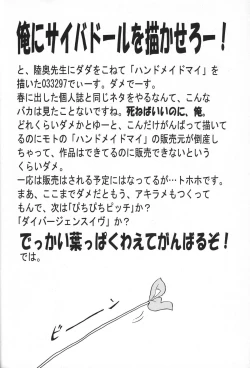 俺にサイバドールを描かせろー！
と、陸奥先生にダダをこねて「ハンドメイドマイ」を
描いた033297でぃーす。ダメでーす。
春に出した個人誌と同じネタをやるなんて、こんな
バカは見たことないですね。死ねばいいのに、俺。
どれくらいダメかとゆーと、こんだけがんばって描いて
るのにモトの「ハンドメイドマイ」の販売元が倒産し
ちゃって、作品はできてるのに販売できないという
くらいダメ。
一応は販売はされる予定にはなってるが…トホホです。
まあ、ここまでダメだともう、アキラメもつくって
もんで、次は「ぴちぴちピッチ」か？
「ダイバージェンスイヴ」か？
でっかい葉っぱくわえてがんばるぞ！
では。
ビーーン